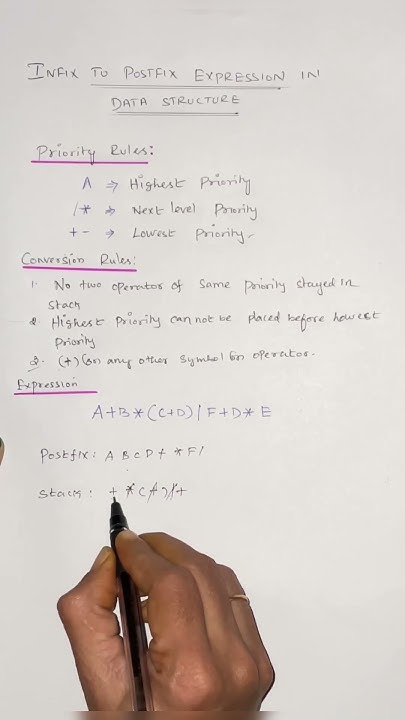 INFIX TO POSTFIX EXPRESSION IN
DATA STRUCTURE
Priority Rules:
^ ⇒ Highest Priority
/* ⇒ Next level Priority
+ - ⇒ Lowest Priority.
Conversion Rules:
1. No two operator of same priority stayed in
stack
2. Highest Priority can not be placed before lowest
priority
3. (+) (or) any other symbol (or) operator.
Expression
A+B*(C+D)/F+D*E
Postfix: A B C D + * F /
Stack: + * ( + ) / +